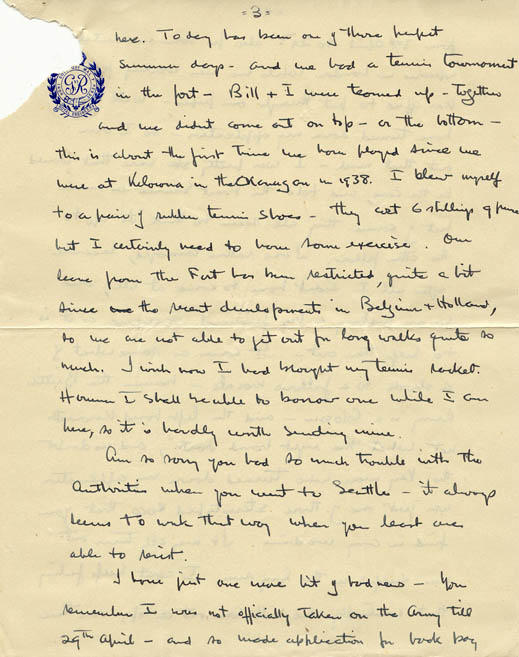 = 3 =
here. Today has been one of those perfect
summer days - and we had a tennis tournament
in the fort - Bill + I were teamed up - together
and we didnt come out on top - or the bottom -
this is about the first time we have played since we
were at Kelowna in the Okanagan in 1938. I blew myself
to a pair of rubber tennis shoes - they cost 6 shillings 9 pence
but I certainly need to have some exercise. Our
leave from the Fort has been restricted, quite a bit
since the recent developments in Belgium + Holland,
so we are not able to get out for long walks quite so
much. I wish now I had brought my tennis racket.
However I shall be able to borrow one while I am
here, so it is hardly worth sending mine.
Am so sorry you had so much trouble with the
Authorities when you went to Seattle - it always
seems to work that way when you least are
able to resist.
I have just one more bit of bad news - You
remember I was not officially taken on the Army till
29th April - and so made application for back pay